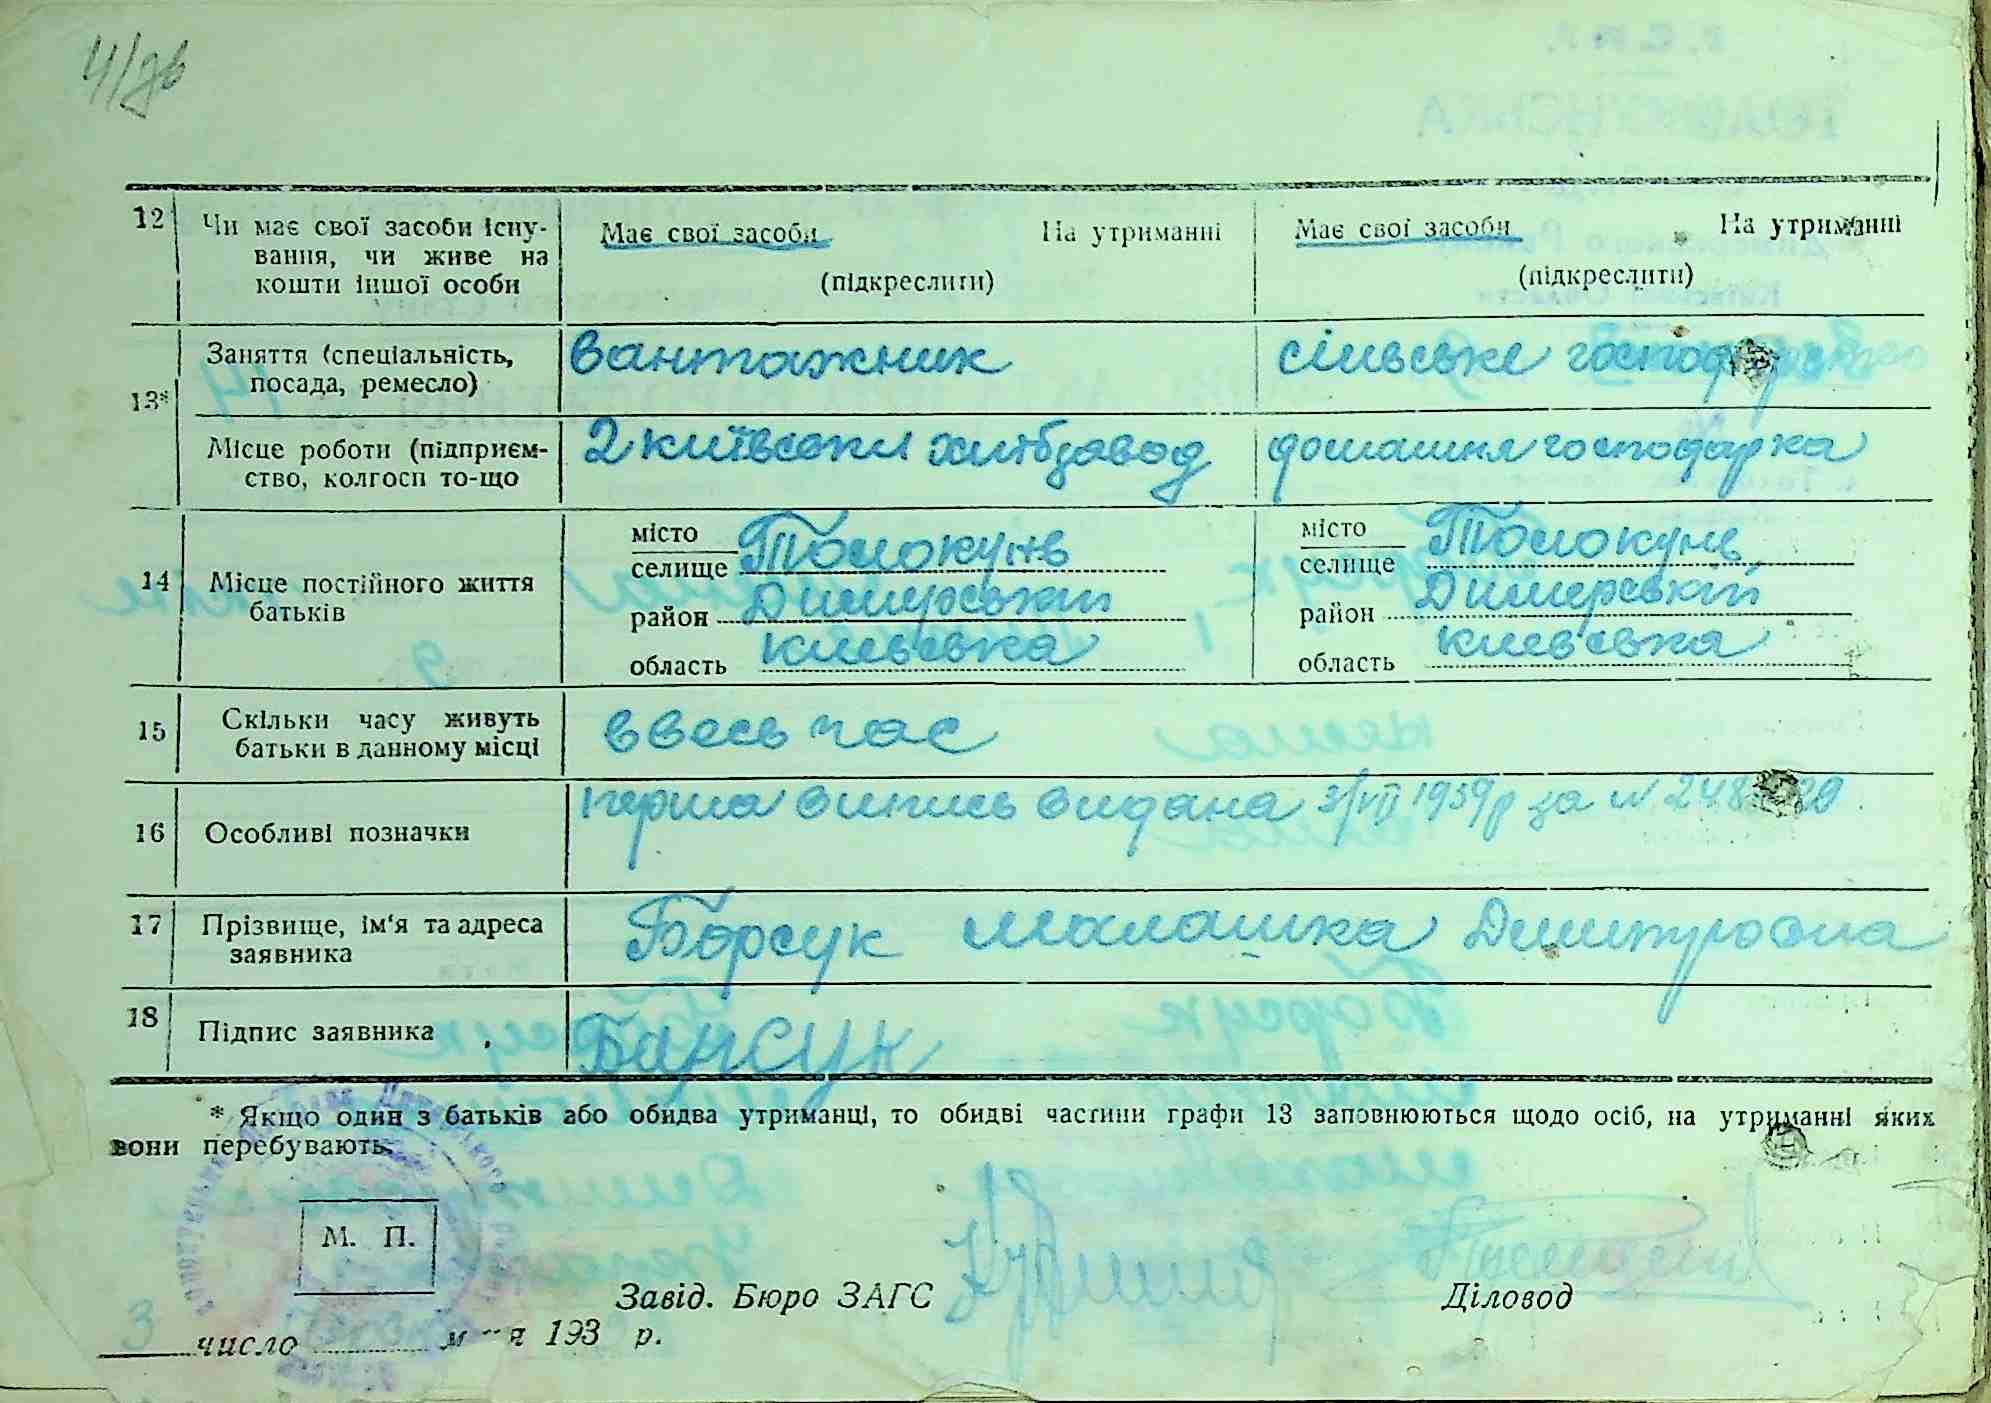 12 Чи має свої засоби існу-
вання, чи живе на
кошти іншої особи
Має свої засоби На утриманні
(підкреслити)
Має свої засоби На утриманні
(підкреслити)
13*
Заняття (спеціальність,
посада, ремесло)
вантажник
сільське
Місце роботи (підприєм-
ство, колгосп то-що
2 київськи хлібзавод
домашня господарка
14 Місце постійного життя
батьків
місто
селище Толокунь
район Димерський
область киевська
місто
селище Толокунь
район Димерський
область киевська
15 Скільки часу живуть
батьки в данному місці
ввесь час
16 Особливі позначки
перша випись видана 3/VII 1939р за №
17 Прізвище, ім'я та адреса
заявника
Борсук Малашка Димитровна
18 Підпис заявника
Барсук
* Якщо один з батьків або обидва утриманці, то обидві частини графи 13 заповнюються щодо осіб, на утриманні яких
вони перебувають.
М. П.
Завід. Бюро ЗАГС
Діловод
3 число м-ця 193 р.